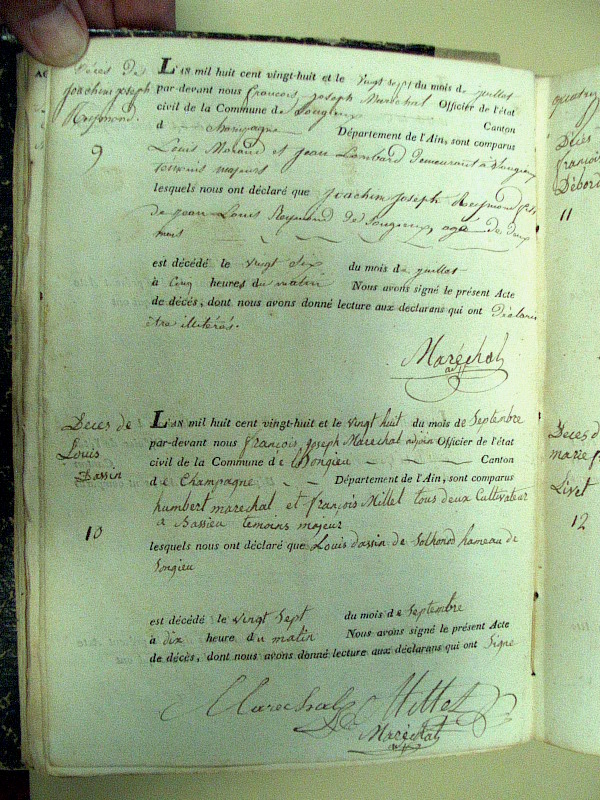 Déces de
Joachim joseph
Reymond.
9
L'AN mil huit cent vingt-huit et le vingt sept du mois de juillet
par-devant nous francois joseph Maréchal Officier de l'état
civil de la Commune de Songieu Canton
d Champagne Département de l'Ain, sont comparus
Louis Morand et jean Lombard demeurant à Songieu
temoins majeurs
lesquels nous ont déclaré que Joachim Joseph Reymond fils
de jean Louis Reymond de Songieu, agé de deux
mois
est décédé le vingt six du mois de juillet
à cinq heures du matin Nous avons signé le présent Acte
de décès, dont nous avons donné lecture aux déclarans qui ont Déclaré
être illitérés.
Maréchal
adj
Deces de
Louis
Dassin
10
L'AN mil huit cent vingt-huit et le vingt huit du mois de Septembre
par-devant nous françois joseph Marechal adjoin Officier de l'état
civil de la Commune de Songieu Canton
d e Champagne Département de l'Ain, sont comparus
humbert marechal et françois Millet tous deux Cultivateur
a Bassieu temoins majeur
lesquels nous ont déclaré que Louis dassin de Solhonod hameau de
Songieu
est décédé le vingt Sept du mois de Septembre
à dix heure du matin Nous avons signé le présent Acte
de décès, dont nous avons donné lecture aux déclarans qui ont Signé
Marechal Millet
Maréchal
adj
quatre
Déces
françois
Débor
11
Deces d
marie f
Livet
12